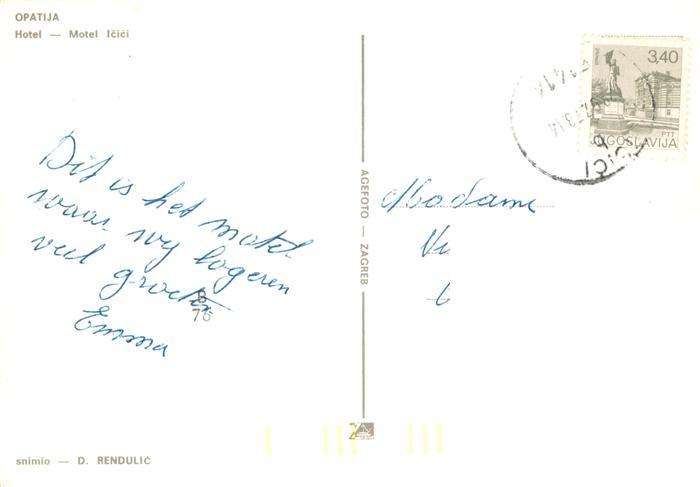 OPATIJA
Hotel — Motel Ičići
3,40
PTT
JUGOSLAVIJA
Dit is het motel
waar wy logeren
veel groeten
Emma
8
75
AGEFOTO — ZAGREB
Madame
snimio — D. RENDULIĆ